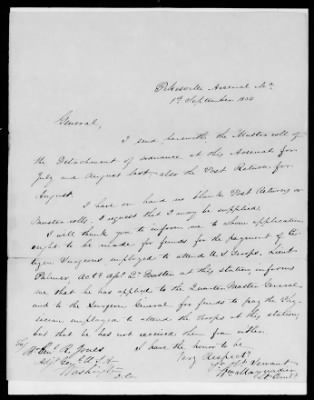 Pikesville Arsenal Md.
1st September 1850
General,
I send herewith the Muster roll of
the Detachment of ordnance at this Arsenal for
July and August last also the Post Return for
August.
I have on hand no blank Post Returns or
Muster rolls. I request that I may be supplied.
I will thank you to inform me to whom application
ought to be made for funds for the payment of
employed to attend U.S. Troops. Lieut
Palmer, Act. Qr. Master at this station, informs
me that he has applied to the Quarter Master General
and to the Surgeon General for funds to pay the Phy-
sician employed to attend the Troops at this station,
but that he has not received them from either.
I have the honor to be
Very Respect.
Servant
Genl R. Jones
Adjt. Genl. U.S.A.
Washington
D.C.